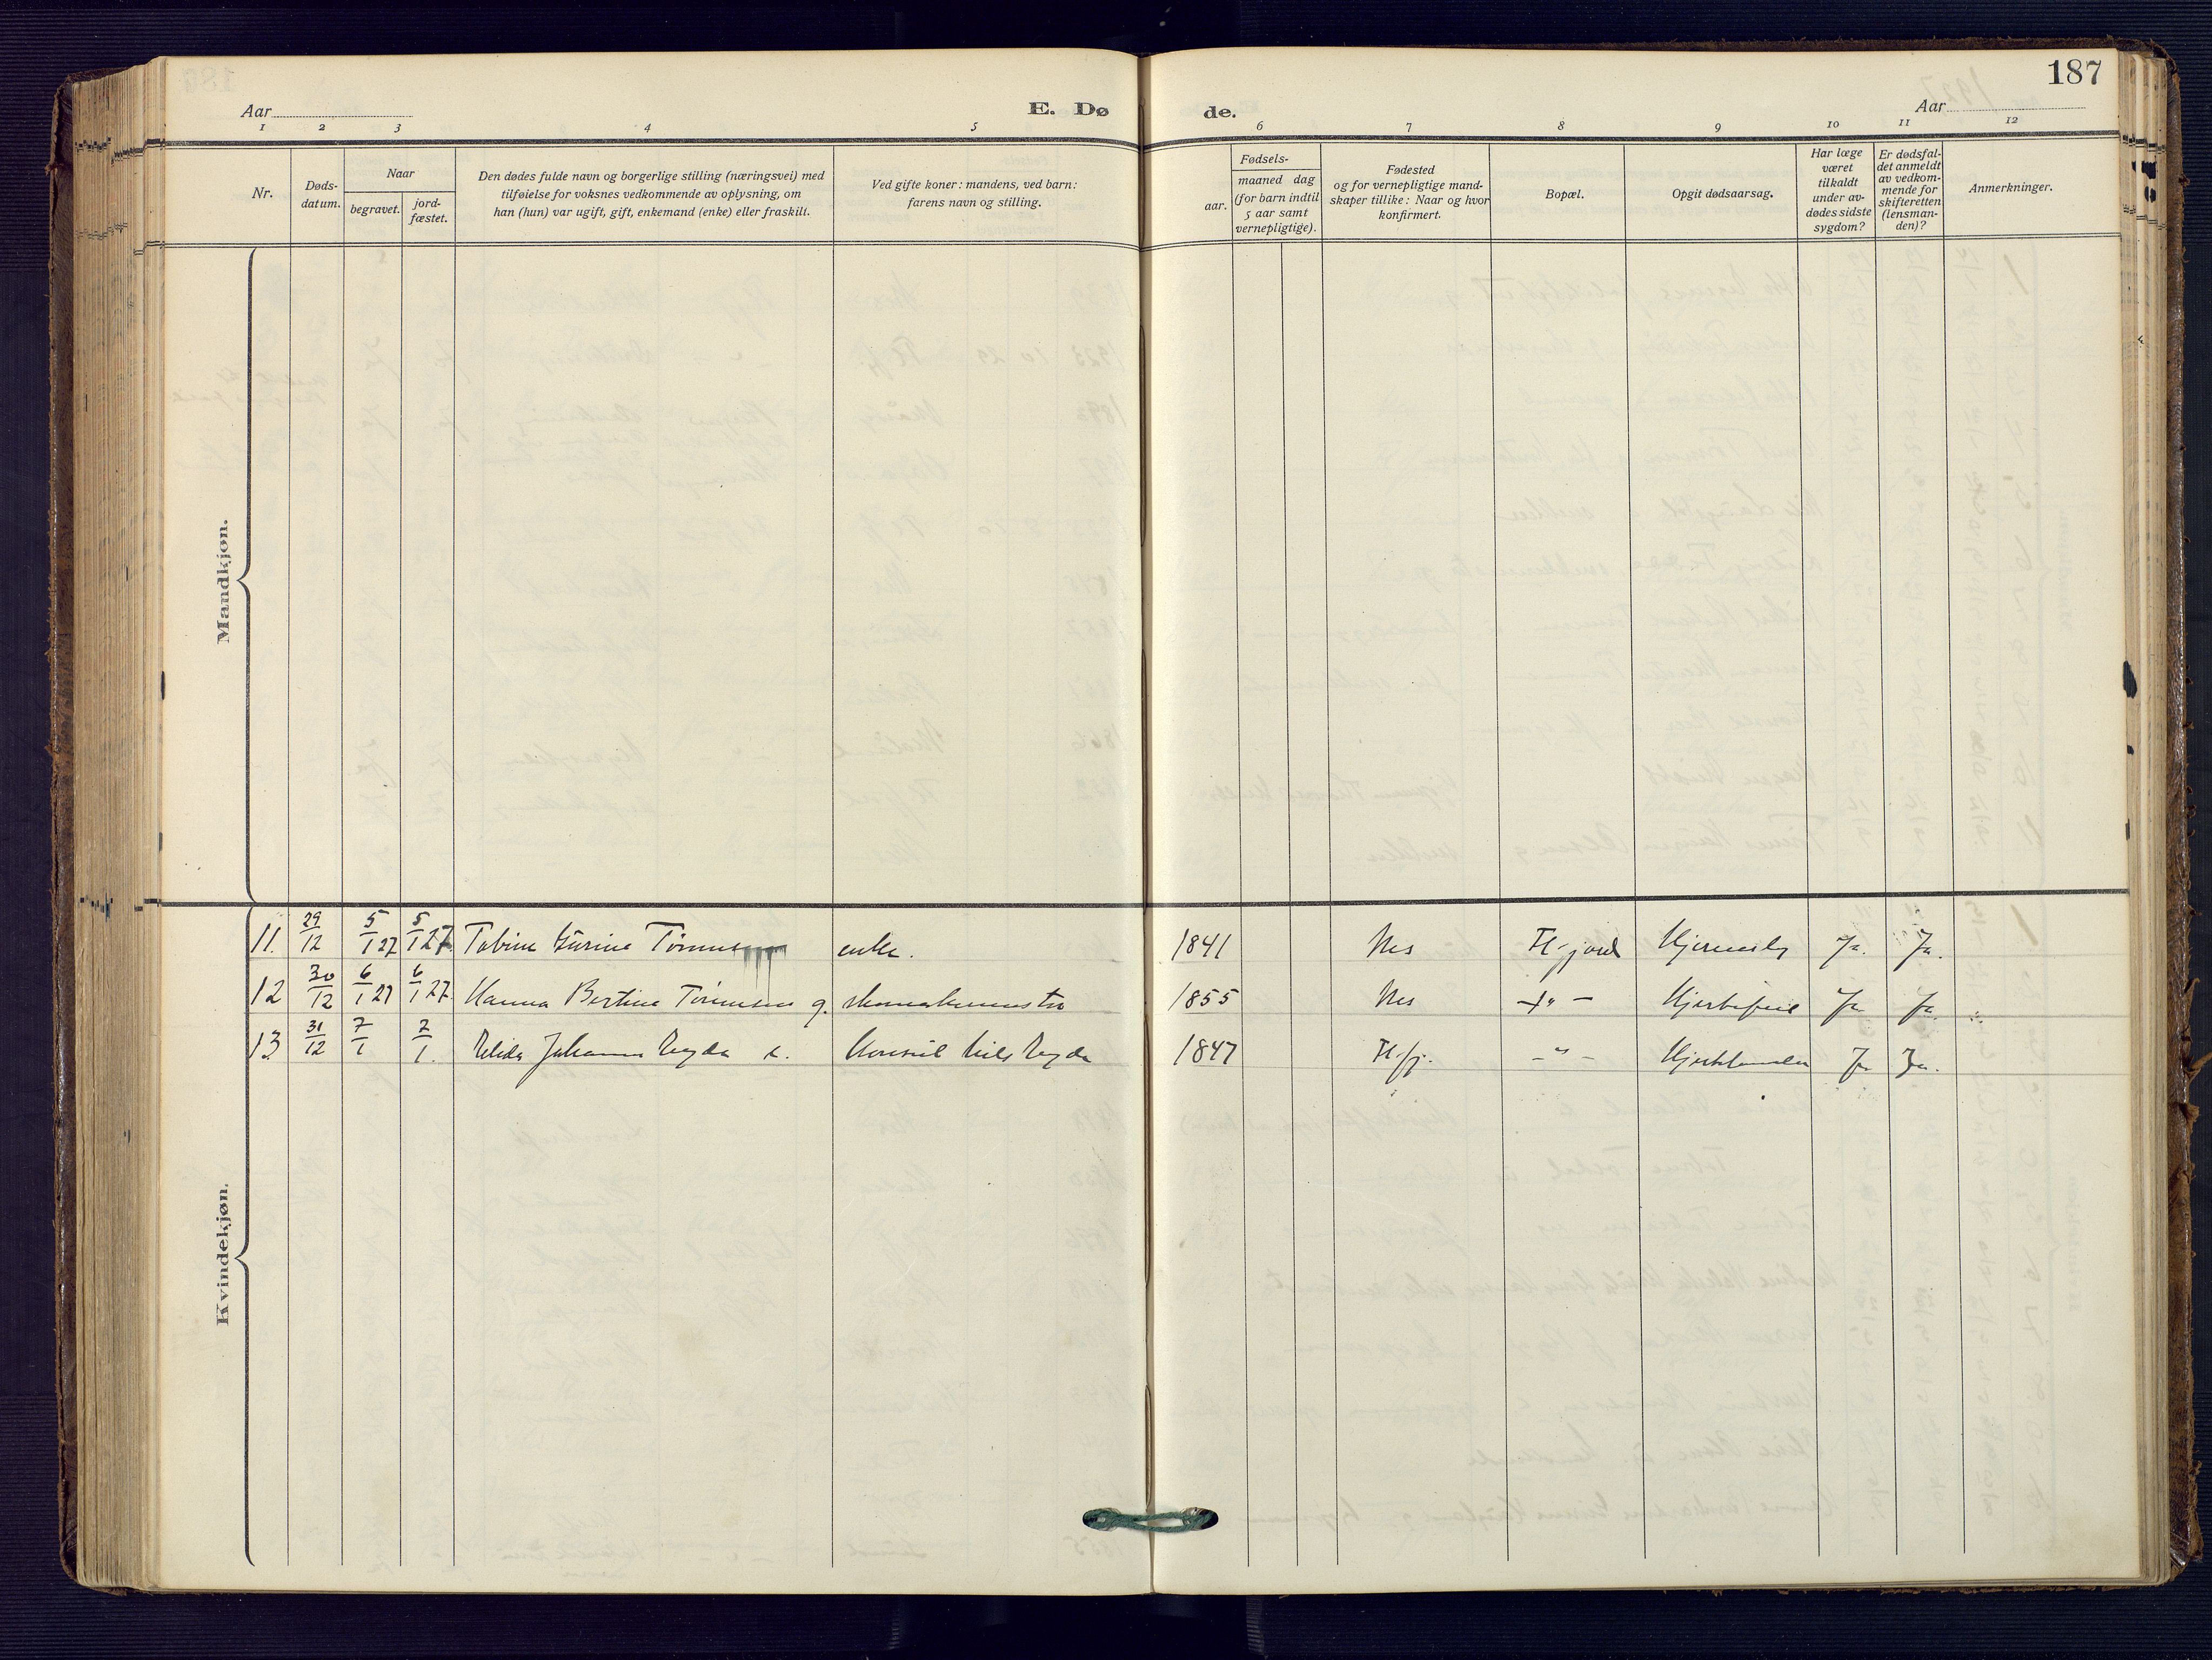 187
Aar
E. Dø
de.
Aar
1 2 3 4 5 6 7 8 9 10 11 12
Nr.
Døds-
datum.
Naar
begravet.
jord-
fæstet.
Den dødes fulde navn og borgerlige stilling (næringsvei) med
tilføielse for voksnes vedkommende av oplysning, om
han (hun) var ugift, gift, enkemand (enke) eller fraskilt.
Ved gifte koner: mandens, ved barn:
farens navn og stilling.
Fødsels-
aar.
maaned dag
(for barn indtil
5 aar samt
vernepligtige).
Fødested
og for vernepligtige mand-
skaper tillike: Naar og hvor
konfirmert.
Bopæl.
Opgit dødsaarsag.
Har læge
været
tilkaldt
under av-
dødes sidste
sygdom?
Er dødsfal-
det anmeldt
av vedkom-
mende for
skifteretten
(lensman-
den)?
Anmerkninger.
Mandkjøn.
Kvindekjøn.
11. 29/12 5/1 27 5/1 27. Tobine Gurine Tønnesen enke. 1841 Nes Fl-fjord Ja. Ja.
12 30/12 6/1 27 6/1 27. Hanna Bertine Tønnesen g. 1855 Nes -"- Hjertefeil Ja Ja.
13 31/12 7/1 7/1. Johanna e. Konsul 1847 Fl-fj. -"- Ja Ja.